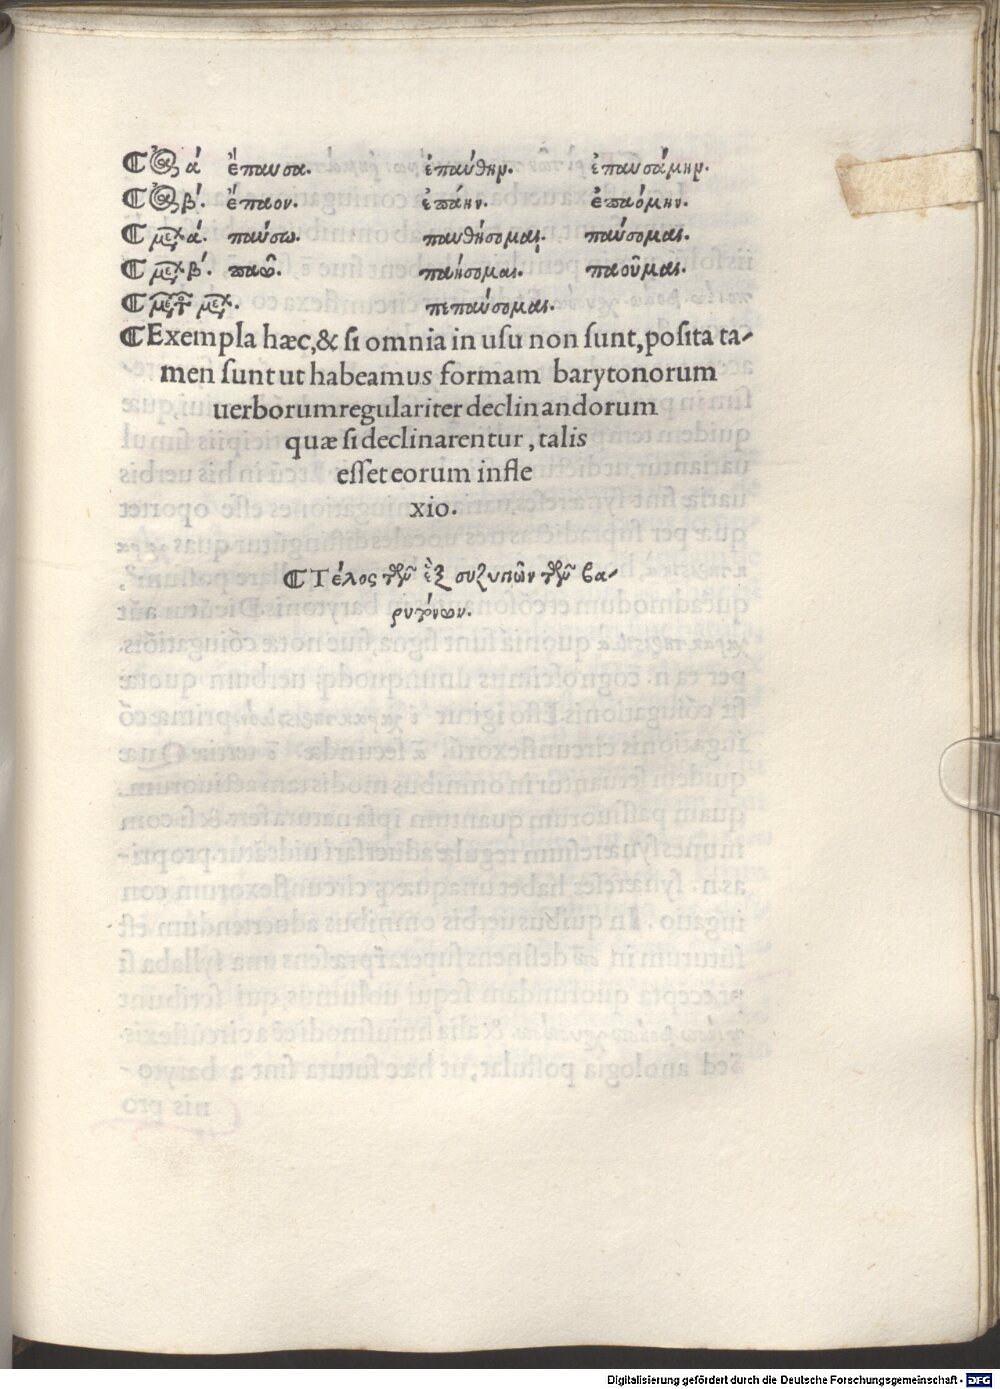 ἀ ἔπαυσα. ἐπαύθην. ἐπαυσάμην.
β'. ἔπαον. ἐπάην. ἐπαόμην.
ά. παύσω. παυθήσομαι. παύσομαι.
β'. παῶ. παήσομαι. παοῦμαι.
πεπαύσομαι.
¶Exempla hæc,& si omnia in usu non sunt,posita ta-
men sunt ut habeamus formam barytonorum
uerborumregulariter declinandorum
quæ si declinarentur, talis
esset eorum infle
xio.
¶Τέλος τῶν ἓξ συζυγιῶν τῶν βα-
ρυτόνων.
Digitalisierung gefördert durch die Deutsche Forschungsgemeinschaft - DFG